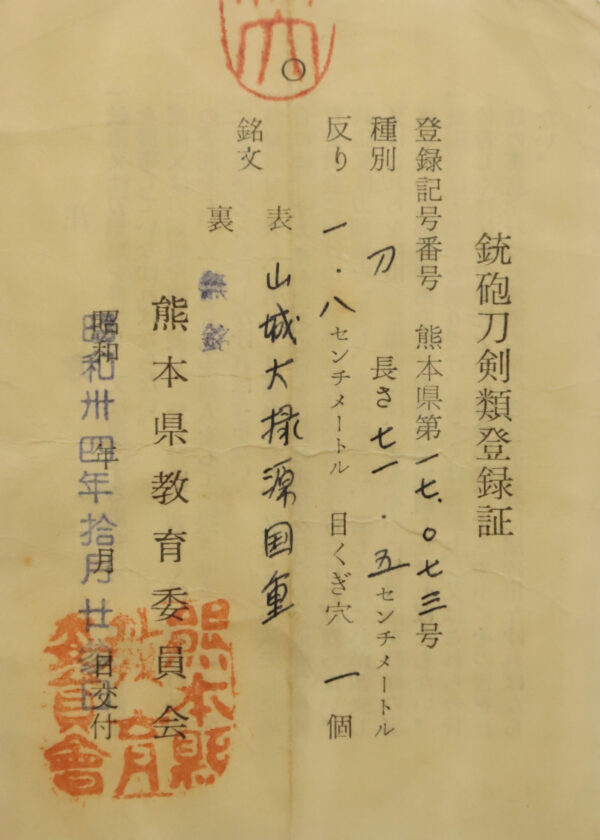 銃砲刀剣類登録証
登録記号番号 熊本県第一七.〇七三号
種別 刀 長さ七一・五センチメートル
反り 一・八センチメートル 目くぎ穴 一個
銘文 表 山城大掾源国重
裏 無銘
熊本県教育委員会
昭和 年 月 日交付
昭和卅四年拾月廿
熊本縣
教育
委員會